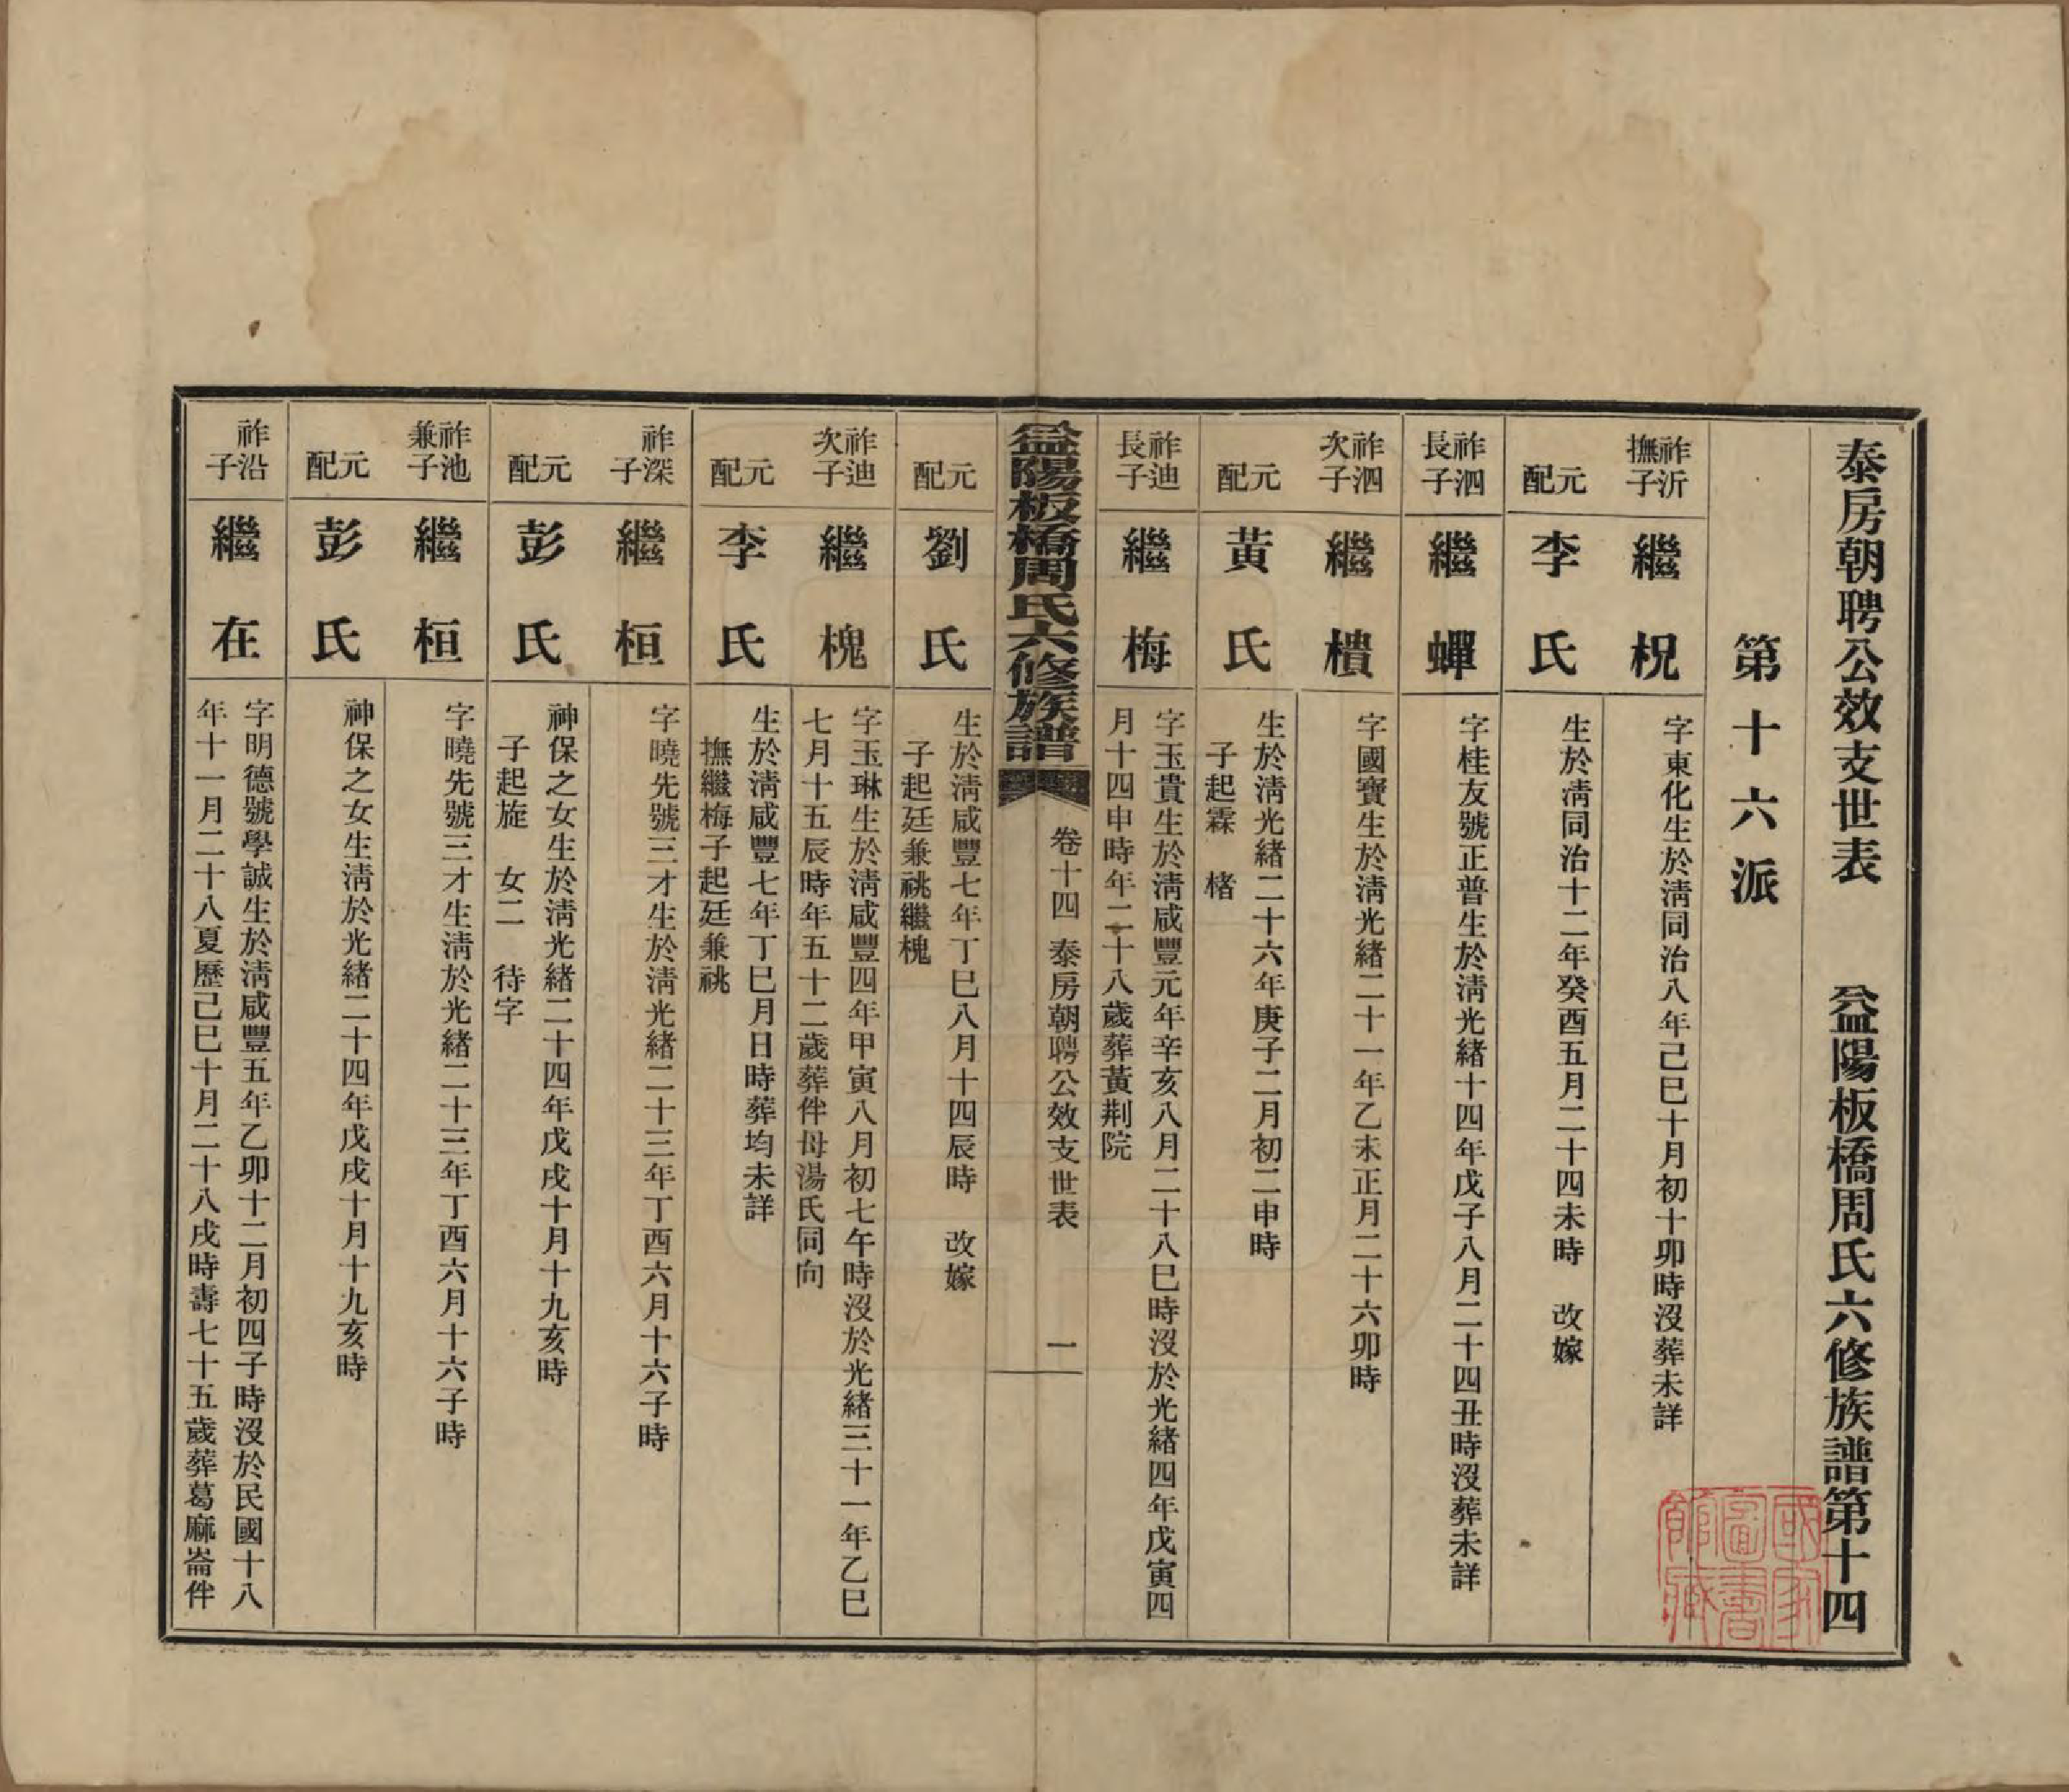 泰房朝聘公效支世表　益陽板橋周氏六修族譜第十四
第十六派
祚沂
撫子
繼柷
字東化生於清同治八年己巳十月初十卯時沒葬未詳
元配
李氏
生於清同治十二年癸酉五月二十四未時　改嫁
祚泗
長子
繼蟬
字桂友號正普生於清光緒十四年戊子八月二十四丑時沒葬未詳
祚泗
次子
繼樻
字國寶生於清光緒二十一年乙未正月二十六卯時
元配
黃氏
生於清光緒二十六年庚子二月初二申時
子起霖　楮
祚迪
長子
繼梅
字玉貴生於清咸豐元年辛亥八月二十八巳時沒於光緒四年戊寅四
月十四申時年二十八歲葬黃荆院
益陽板橋周氏六修族譜
卷十四　泰房朝聘公效支世表
一
元配
劉氏
生於清咸豐七年丁巳八月十四辰時　改嫁
子起廷兼祧繼槐
祚迪
次子
繼槐
字玉琳生於清咸豐四年甲寅八月初七午時沒於光緒三十一年乙巳
七月十五辰時年五十二歲葬伴母湯氏同向
元配
李氏
生於清咸豐七年丁巳月日時葬均未詳
撫繼梅子起廷兼祧
祚深
子
繼桓
字曉先號三才生於清光緒二十三年丁酉六月十六子時
元配
彭氏
神保之女生於清光緒二十四年戊戌十月十九亥時
子起旋　女二　待字
祚池
兼子
繼桓
字曉先號三才生清於光緒二十三年丁酉六月十六子時
元配
彭氏
神保之女生清於光緒二十四年戊戌十月十九亥時
祚沿
子
繼在
字明德號學誠生於清咸豐五年乙卯十二月初四子時沒於民國十八
年十一月二十八夏歷己巳十月二十八戌時壽七十五歲葬葛麻崙伴
國家
圖書
館藏